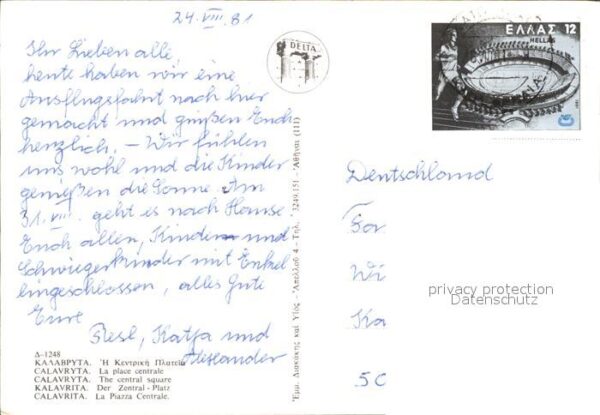 24.VIII.81
Ihr Lieben alle,
heute haben wir eine
Ausflugsfahrt nach hier
gemacht und grüßen Euch
herzlich. – Wir fühlen
uns wohl und die Kinder
genießen die Sonne. Am
31.VIII. geht es nach Hause
Euch allen, Kinder und
Schwiegerkinder mit Enkel
eingeschlossen, alles Gute
Eure
Resl, Katja und
Alexander
Δ-1248
ΚΑΛΑΒΡΥΤΑ. Ἡ Κεντρική Πλατεῖα
CALAVRYTA. La place centrale
CALAVRYTA. The central square
KALAVRITA. Der Zentral-Platz
CALAVRITA. La Piazza Centrale.
DELTA
Ἐμμ. Διακάκης καί Υἱός - Ἀπελλοῦ 4 - Τηλ. 3249.151 - Ἀθῆναι (111)
ΕΛΛΑΣ 12
HELLAS
Deutschland
Wi
Ka
50
privacy protection
Datenschutz